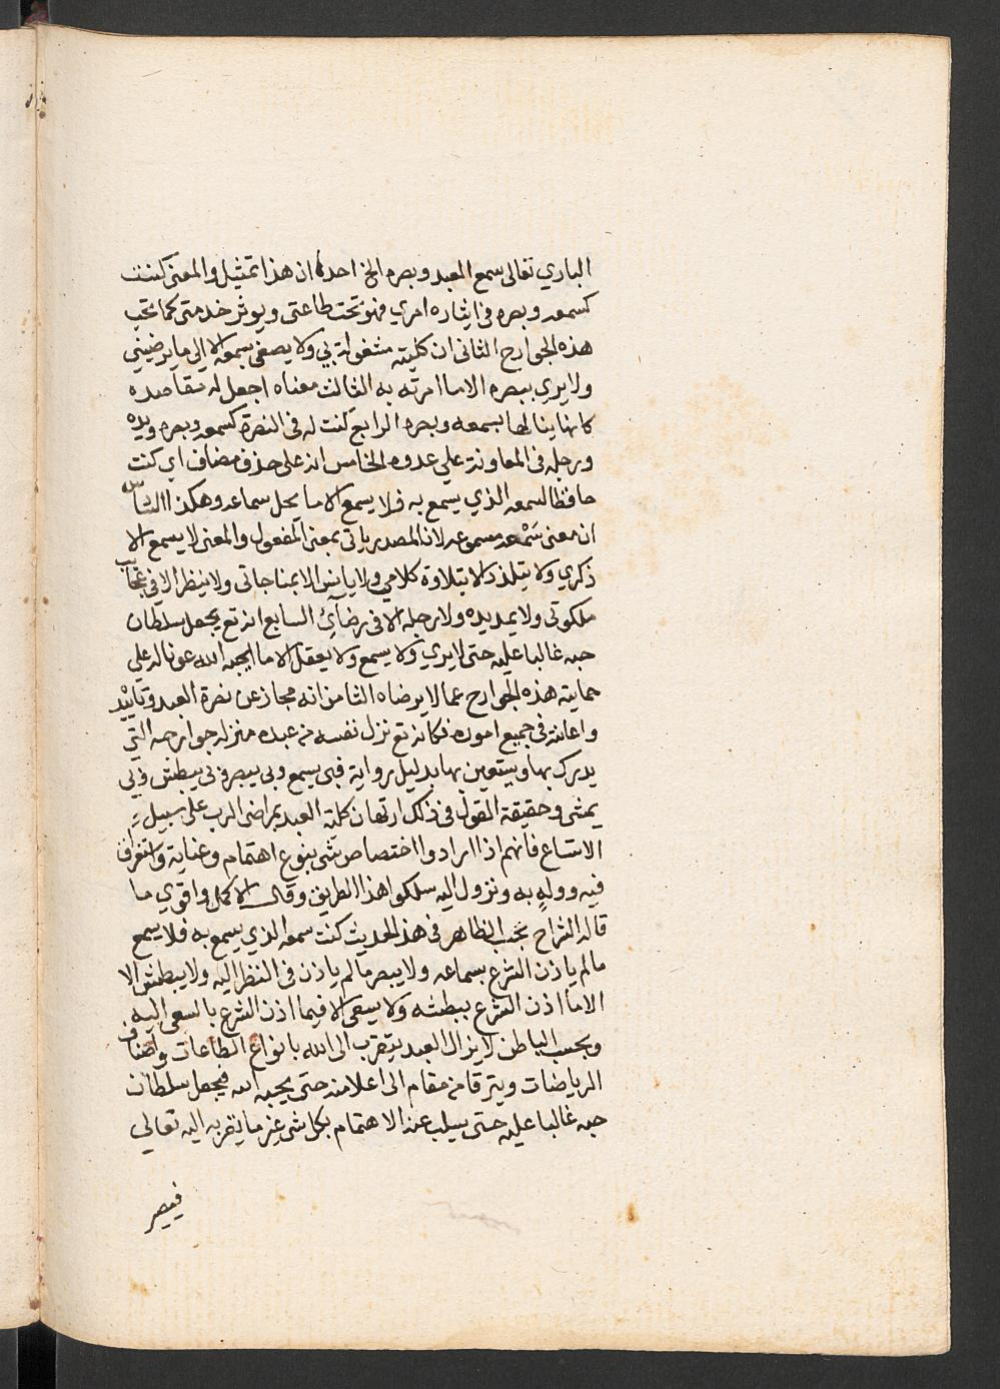 الباري تعالى سمع العبد وبصره الخ احدها ان هذا تمثيل والمعنى كنت
كسمعه وبصره في ايثاره امري فهو تحت طاعتي ويوثر خدمتي كما تحب
هذه الجوارح الثاني ان كليته مشغولة بي ولا يصغى بسمعه الا الى ما يرضيني
ولا يري ببصره الا ما امرته به الثالث معناه اجعل له مقاصده
كانها ينالها بسمعه وبصره الرابع كنت له في النصرة كسمعه وبصره ويده
ورجله في المعاونة علي عدوه الخامس انه على حذف مضاف اي كنت
حافظا لسمعه الذي يسمع به فلا يسمع الا ما يحل سماعه وهكذا السادس
ان معنى سَمْعه مسموعه لان المصدر ياتى بمعنى المفعول والمعنى لا يسمع الا
ذكري ولا يتلذذ الا بتلاوة كلامي ولا يانس الا بمناجاتى ولا ينظر الا في عجائب
ملكوتى ولا يمد يده ولا رجله الا في رضائي السابع انه تع يجعل سلطان
حبه غالبا عليه حتى لا يري ولا يسمع ولا يعقل الا ما يحبه الله عونا له على
حماية هذه الجوارح عما لا يرضاه الثامن انه مجاز عن نصرة العبد وتاييد
واعانته في جميع اموره فكانه تع نزل نفسه من عبده منزلة جوارحه التي
يدرك بها ويستعين بها بدليل رواية فبى يسمع وبى يبصر وبى يبطش وبى
يمشى وحقيقة القول في ذلك ارتهان كلية العبد بمراضى الرب على سبيل
الاتساع فانهم اذا ارادوا اختصاص شى بنوع اهتمام وعناية واستغراق
فيه ووله به ونزول اليه سلكوا هذا الطريق وقال الاكمل واقوي ما
قاله الشراح بحسب الظاهر في هذا الحديث كنت سمعه الذي يسمع به فلا يسمع
ما لم ياذن الشرع بسماعه ولا يبصر ما لم ياذن في النظر اليه ولا يبطش الا
الا ما اذن الشرع ببطشه ولا يسعى الا فيما اذن الشرع بالسعى اليه
وبحسب الباطن لا يزال العبد يتقرب الى الله بانواع الطاعات واصناف
الرياضات ويترقا من مقام الى اعلا منه حتى يحبه الله فيجعل سلطان
حبه غالبا عليه حتى يسلب عنه الاهتمام بكل شى غير ما يقربه اليه تعالي
فيصير